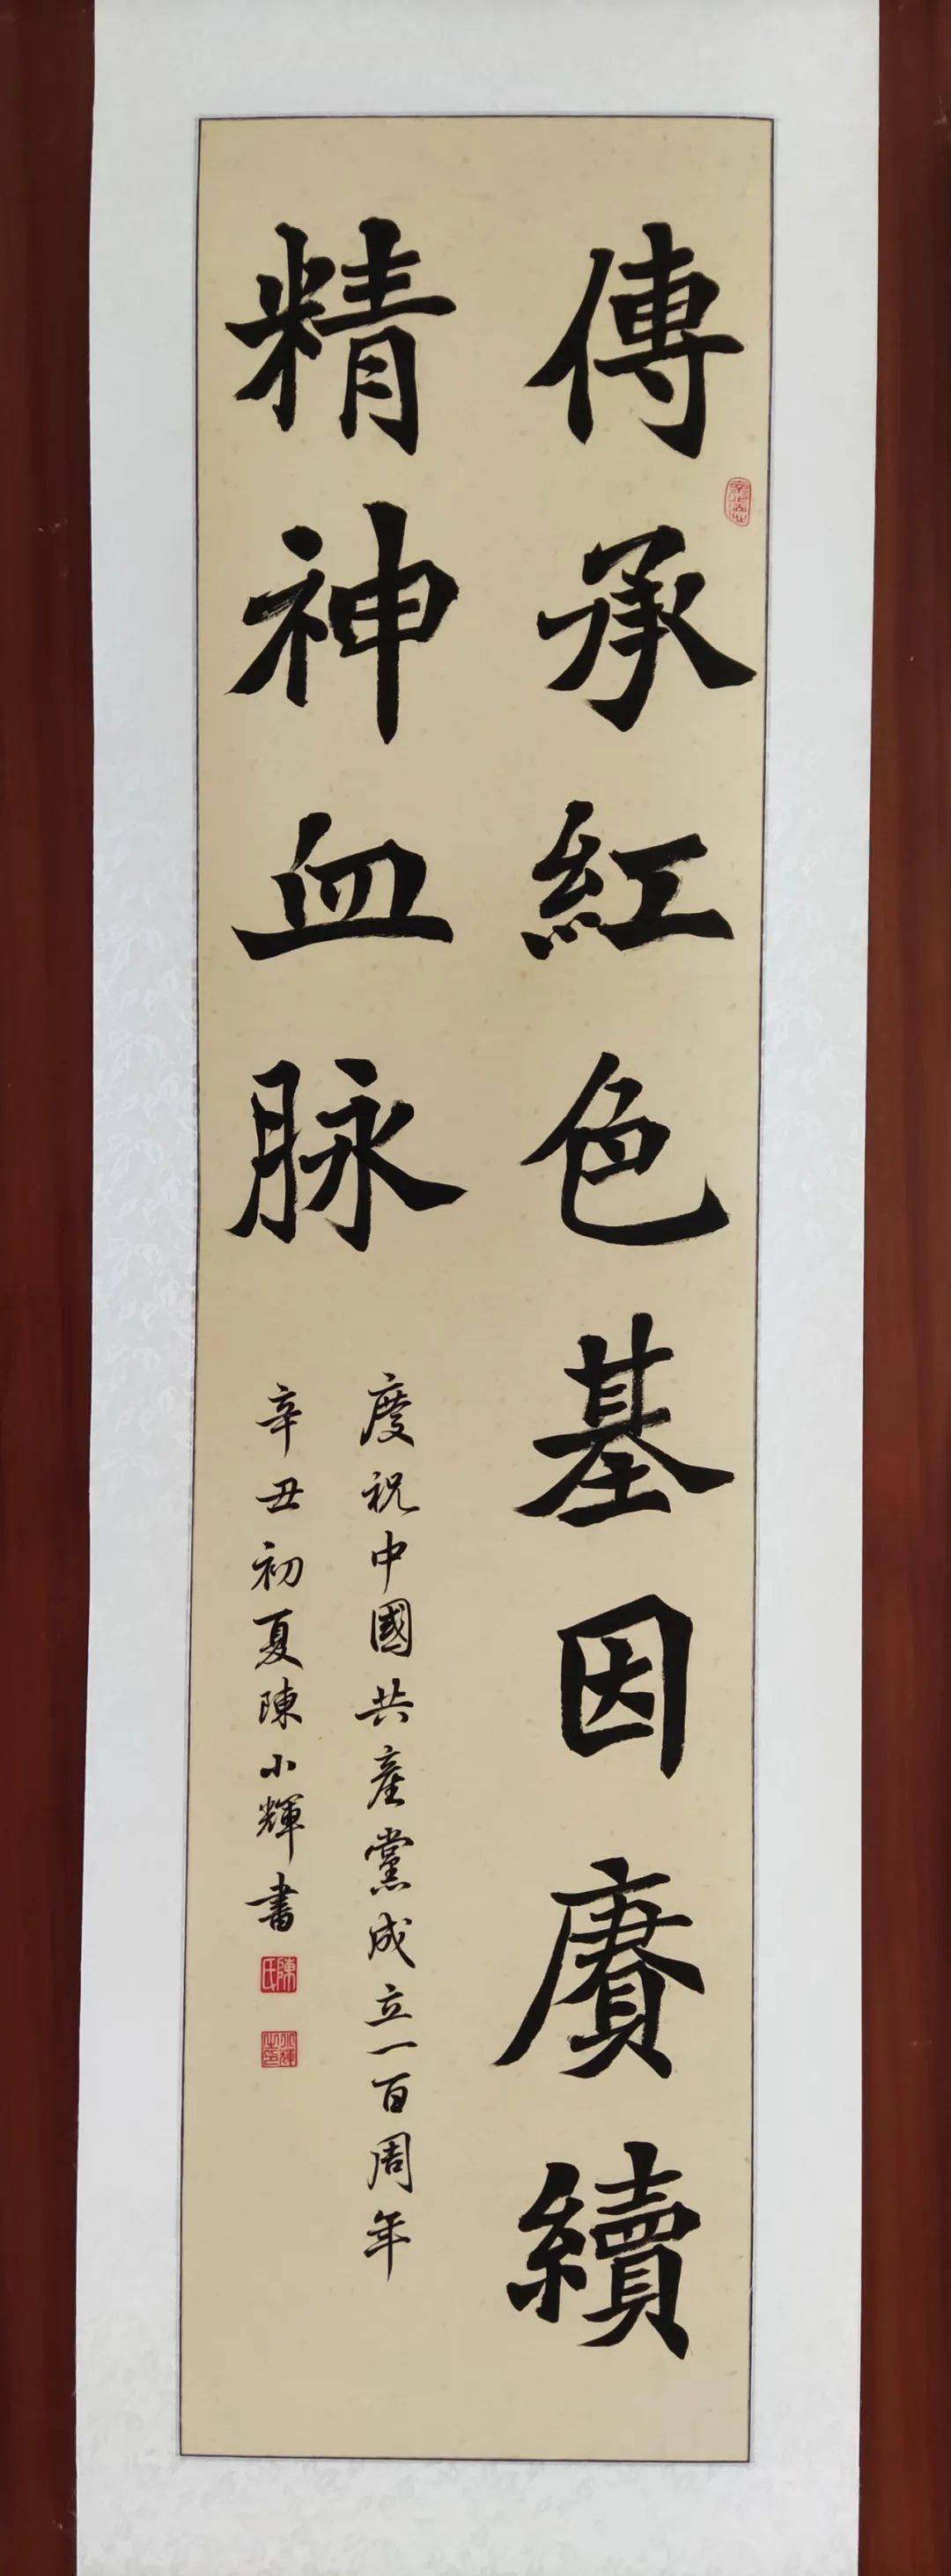 傳承紅色基因賡續
精神血脉
慶祝中國共產黨成立一百周年
辛丑初夏陳小輝書
陳氏